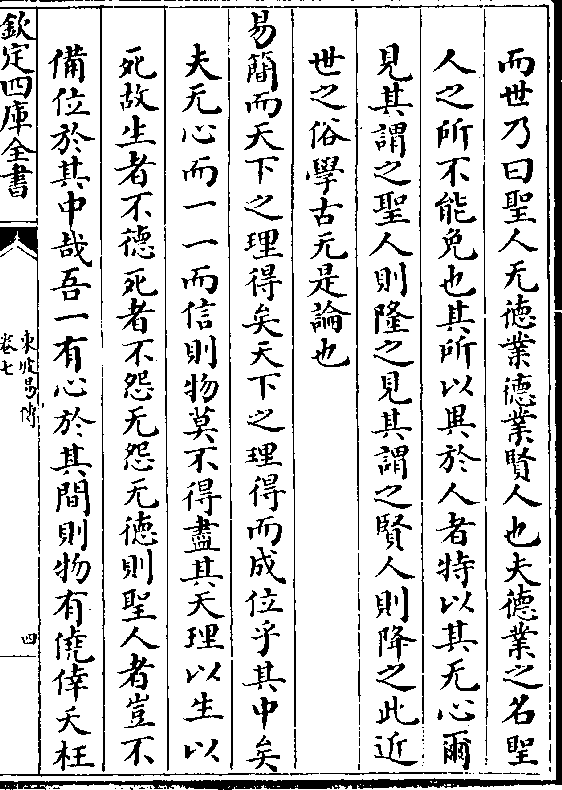 而世乃曰聖人无德業德業賢人也夫德業之名聖
人之所不能免也其所以異於人者特以其无心爾
見其謂之聖人則隆之見其謂之賢人則降之此近
世之俗學古无是論也
易簡而天下之理得矣天下之理得而成位乎其中矣
夫无心而一一而信則物莫不得盡其天理以生以
死故生者不德死者不怨无怨无德則聖人者豈不
備位於其中哉吾一有心於其間則物有僥倖夭枉
欽定四庫全書
東坡易傳
卷七
四